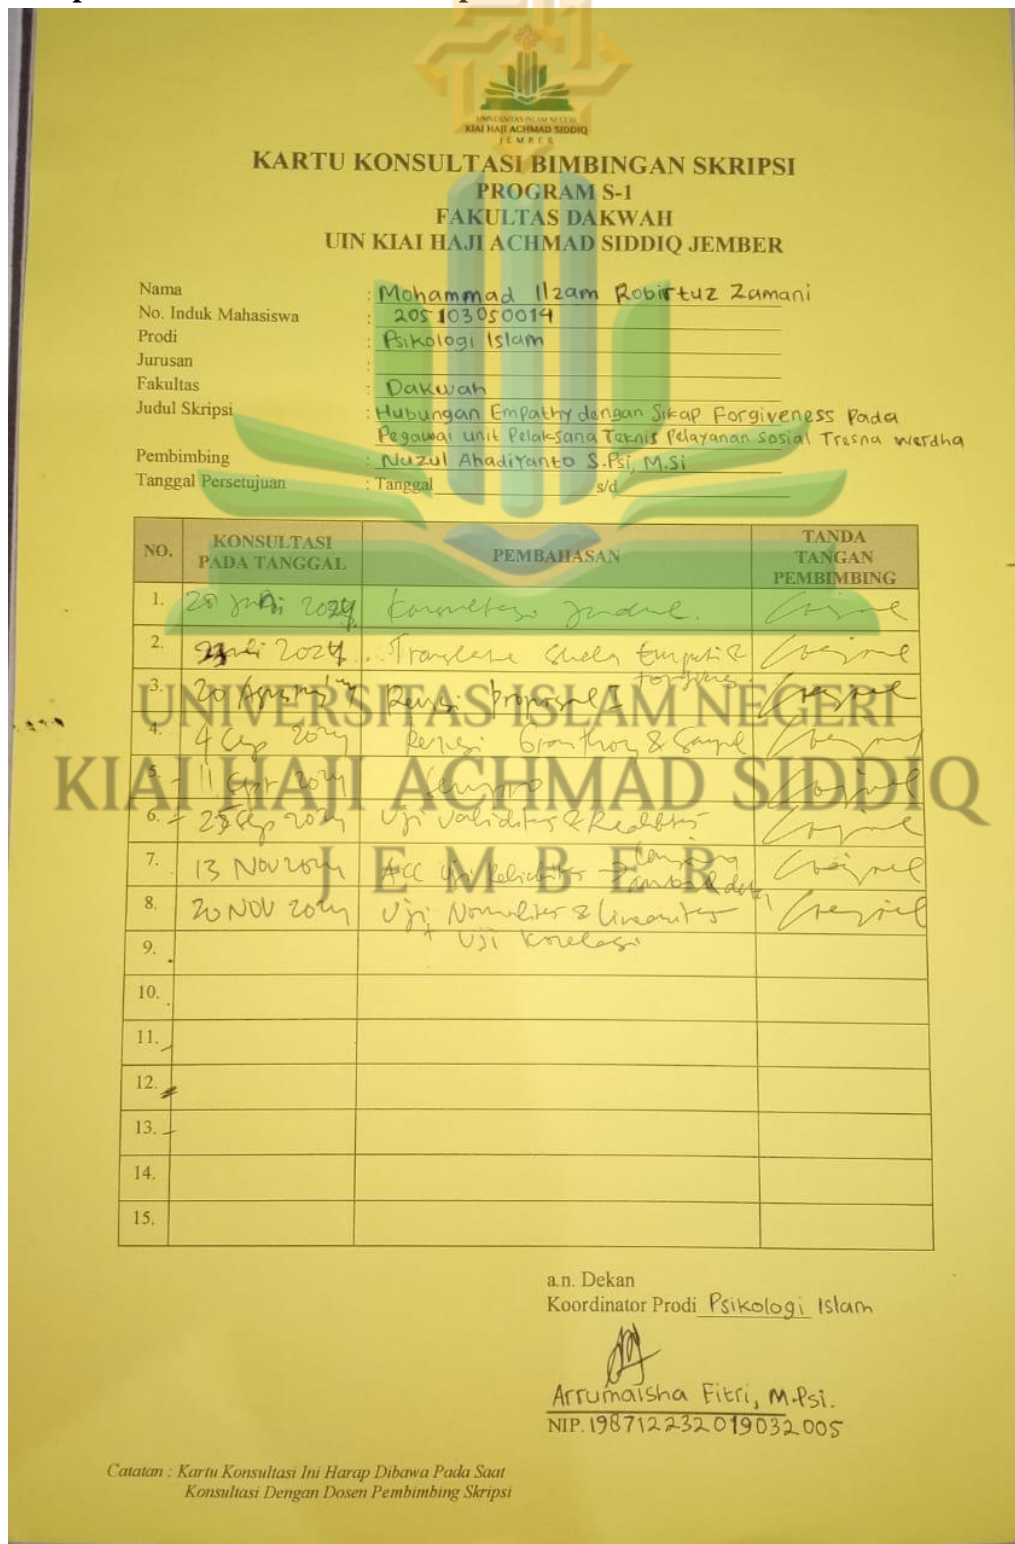 UNIVERSITAS ISLAM NEGERI
KIAI HAJI ACHMAD SIDDIQ
JEMBER
KARTU KONSULTASI BIMBINGAN SKRIPSI
PROGRAM S-1
FAKULTAS DAKWAH
UIN KIAI HAJI ACHMAD SIDDIQ JEMBER
Nama : Mohammad Ilzam Robirtuz Zamani
No. Induk Mahasiswa : 205103050014
Prodi : Psikologi Islam
Jurusan :
Fakultas : Dakwah
Judul Skripsi : Hubungan Empathy dengan Sikap Forgiveness Pada
Pegawai unit Pelaksana Teknis Pelayanan Sosial Tresna Werdha
Pembimbing : Nuzul Ahadiyanto S.Psi, M.Si
Tanggal Persetujuan : Tanggal s/d
NO. KONSULTASI PADA TANGGAL PEMBAHASAN TANDA TANGAN PEMBIMBING
1. 2024 Konsultasi Judul.
2. Juli 2024 Translate Skala Empati &
3. 20 Agustus Revisi Proposal I
4. 4 Sep 2024 Revisi &
5. 11 Sept 2024 Sempro
6. 25 Sep 2024 Uji Validitas &
7. 13 Nov 2024 ACC Uji Reliabilitas
8. 20 Nov 2024 Uji Normalitas & Linearitas
+ Uji Korelasi
9.
10.
11.
12.
13.
14.
15.
UNIVERSITAS ISLAM NEGERI
KIAI HAJI ACHMAD SIDDIQ
JEMBER
a.n. Dekan
Koordinator Prodi Psikologi Islam
Arrumaisha Fitri, M.Psi.
NIP. 198712232019032005
Catatan : Kartu Konsultasi Ini Harap Dibawa Pada Saat
Konsultasi Dengan Dosen Pembimbing Skripsi